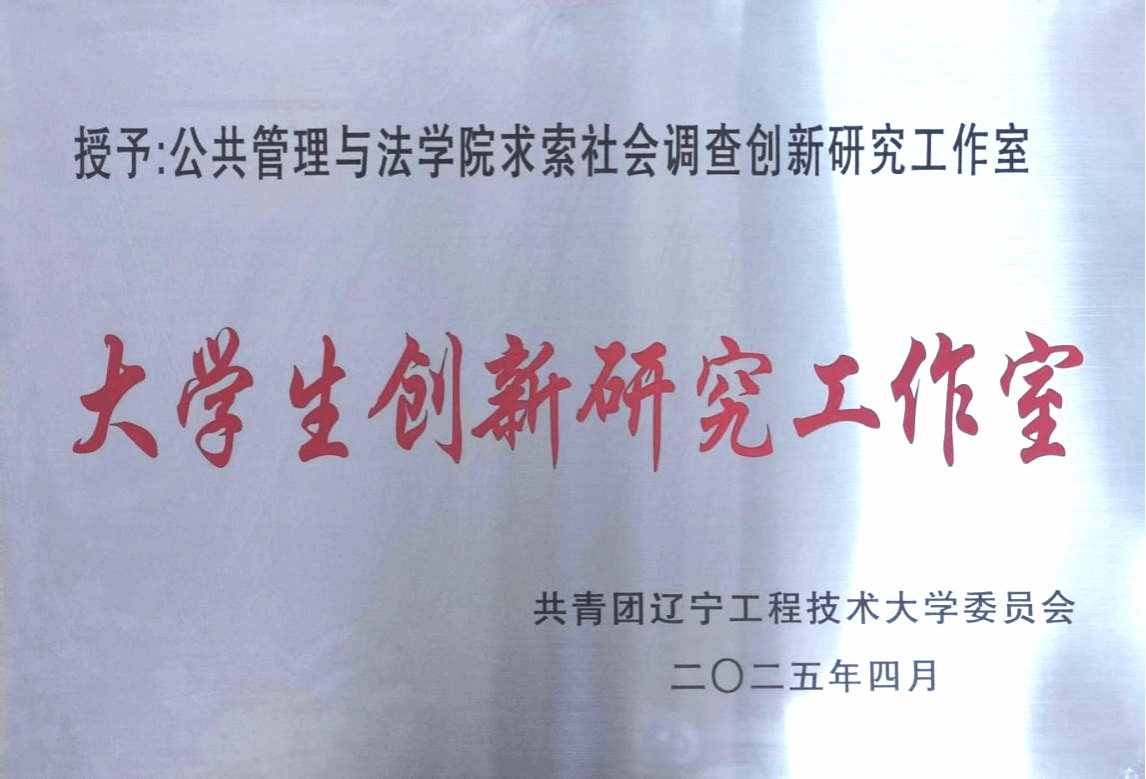 授予:公共管理与法学院求索社会调查创新研究工作室
大学生创新研究工作室
共青团辽宁工程技术大学委员会
二〇二五年四月